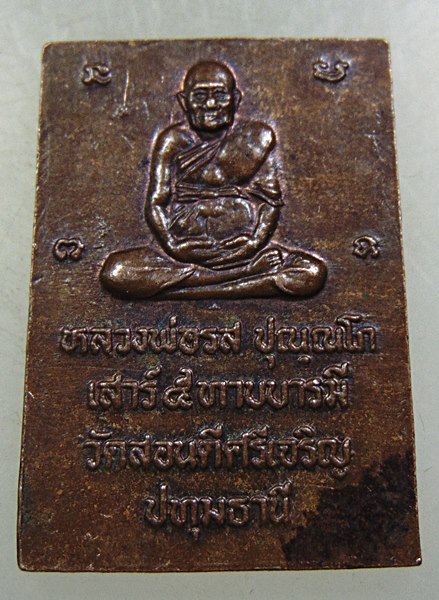 หลวงพ่อรส ปุณฺณโก
เสาร์ ๕ ทาบบารมี
วัดสอนดีศรีเจริญ
ปทุมธานี